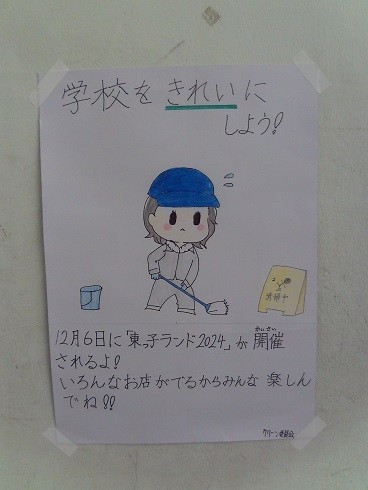 学校をきれいに
しよう!
清掃中
12月6日に「東っ子ランド2024」が開催
かいさい
されるよ!
いろんなお店がでるからみんな楽しん
でね!!
クリーン委員会